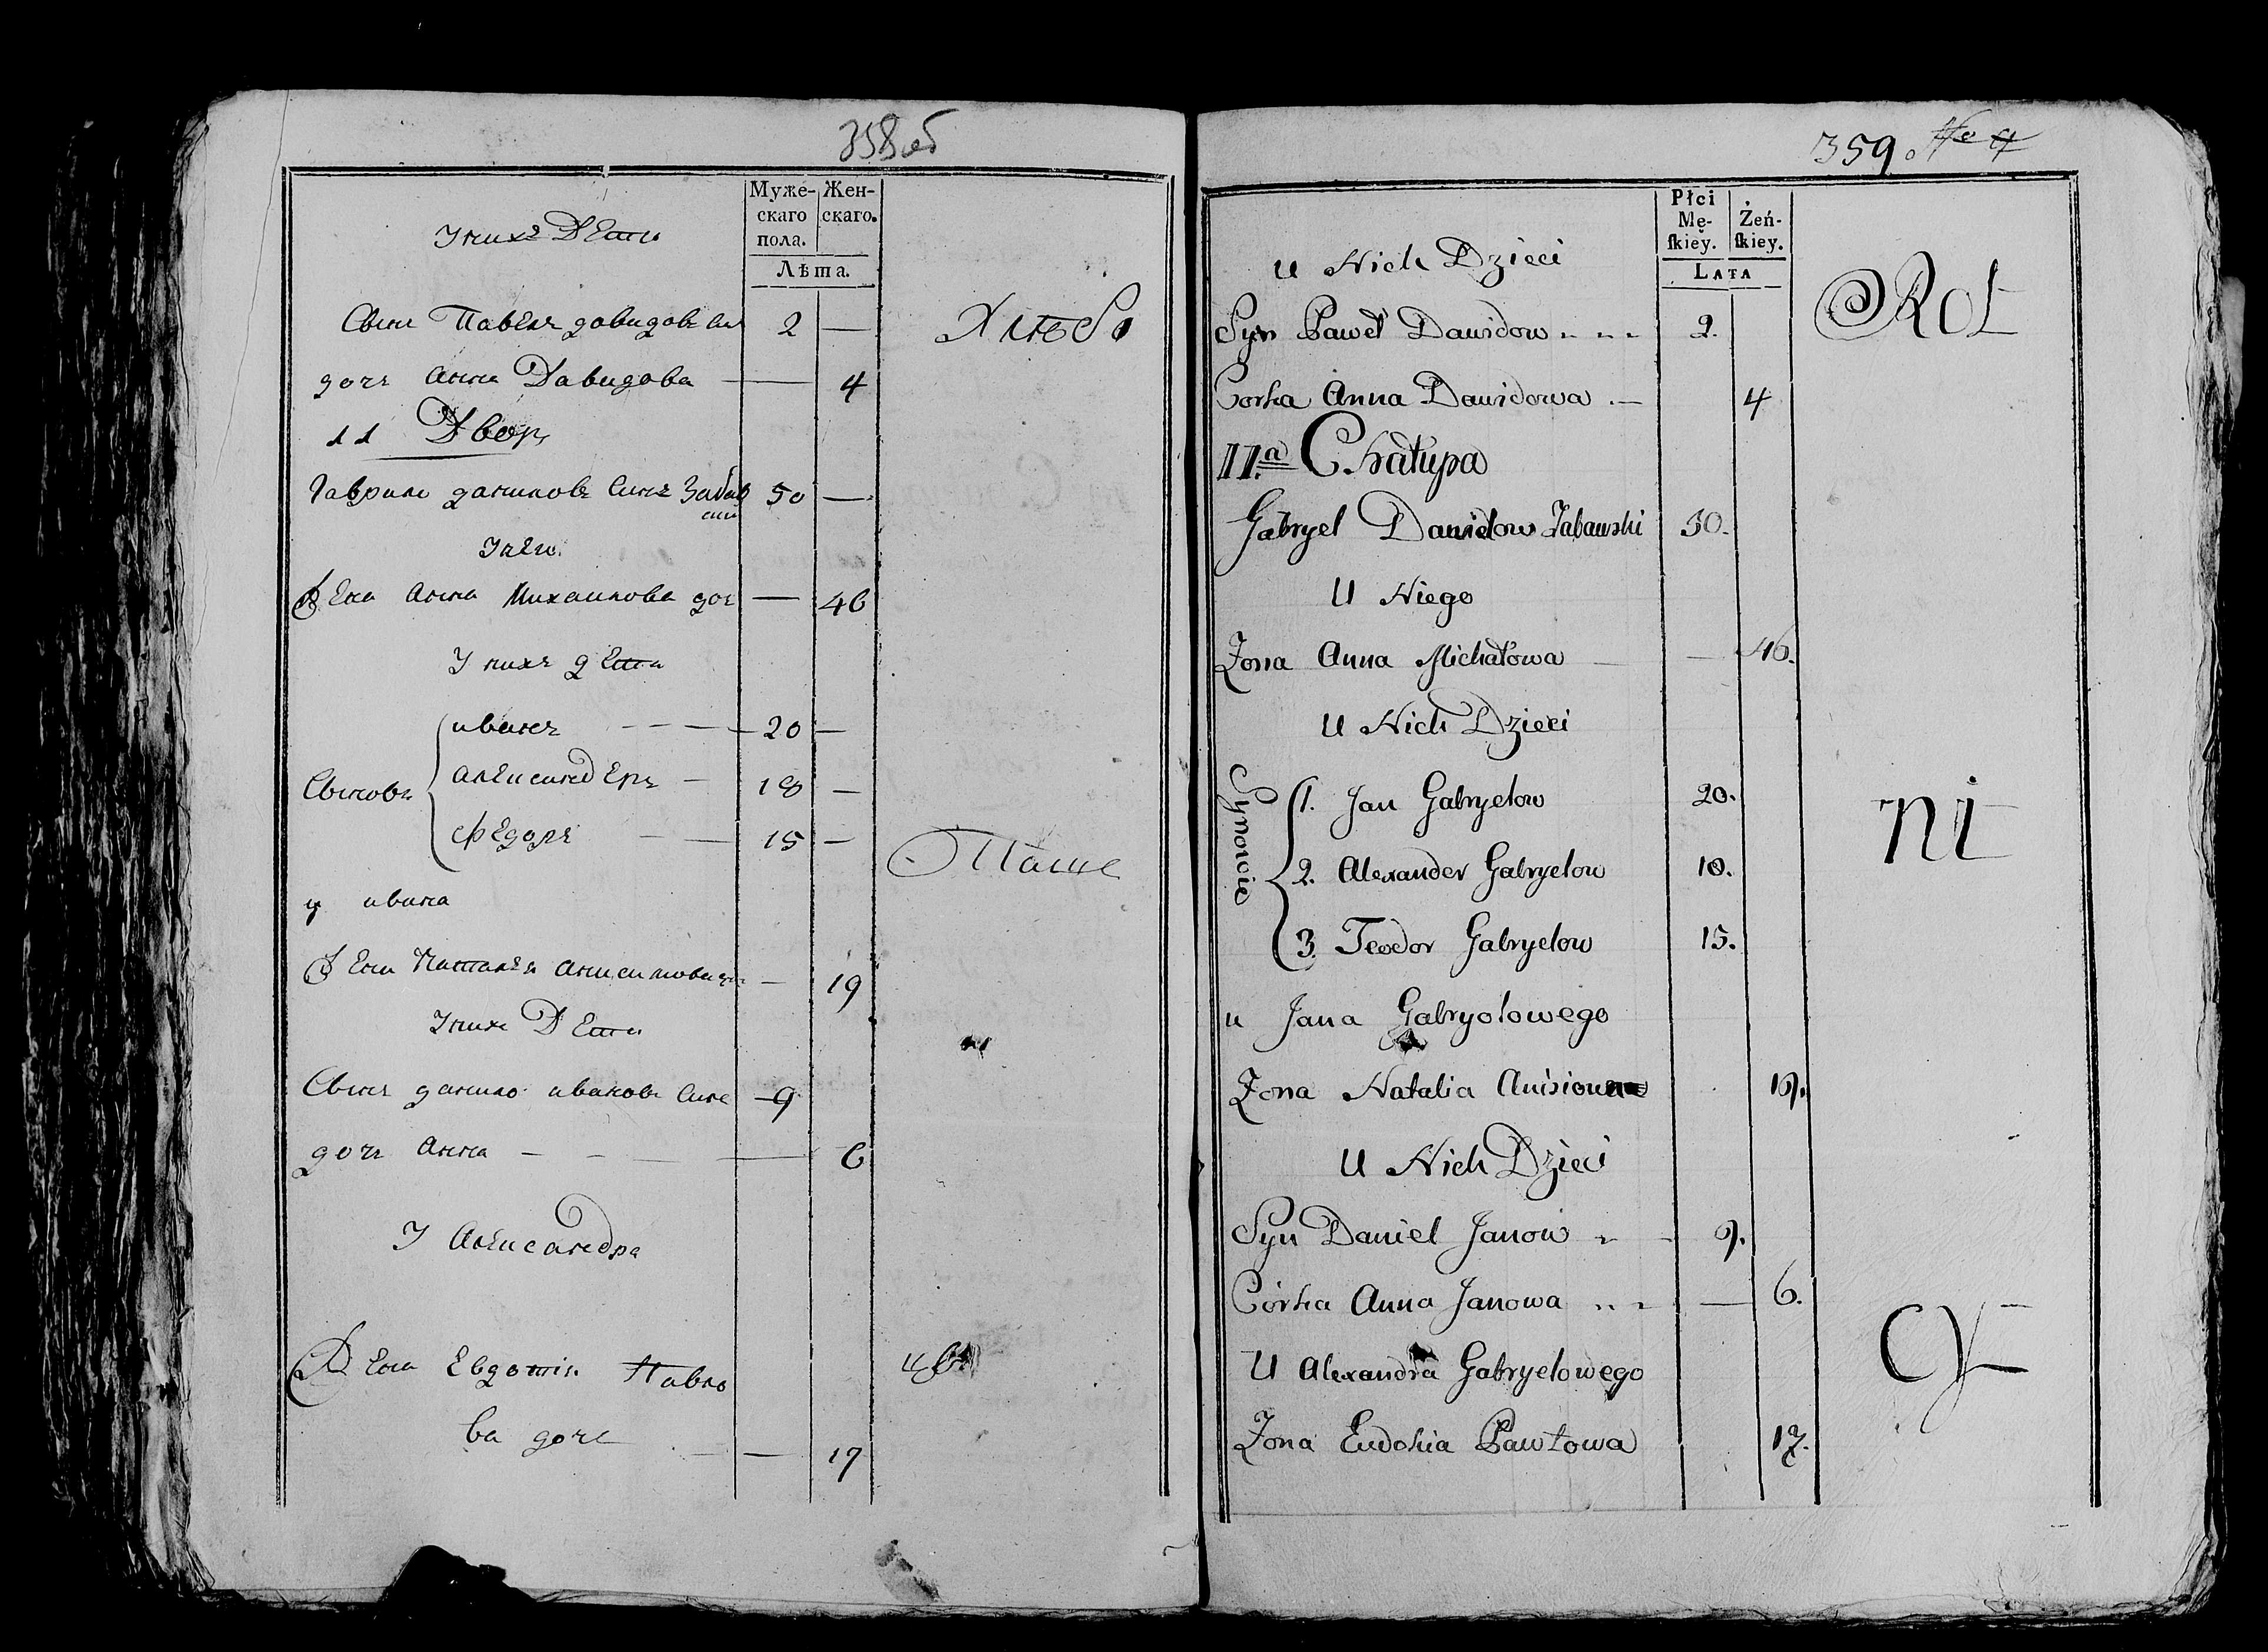 358об
Муже-
скаго
пола.
Жен-
скаго.
Лѣта.
У нихъ Дети
Сынъ Павелъ давидовъ сы 2 —
дочь анна Давидова — 4
11 Дворъ
Гаврило даниловъ синъ Забав
ски 50 —
У него
Жена анна Михаилова доч — 46
У нихъ дети
Сыновъ
иванъ — — — 20 —
александеръ — 18 —
федоръ — — 15 —
у ивана
Жена Наталья анисимова до — 19
У нихъ Дети
Сынъ данило ивановъ сынъ 9
дочь анна — — — 6
У александра
Жена Евдотия Павло
ва дочь — 17
Хлебо
Паше
цы
359.
Płci
Mę-
ſkiey.
Żeń-
ſkiey.
LATA
u Nich Dzieci
Syn Paweł Dawidow 2.
Corka Anna Dawidowa 4
11.a Chałupa
Gabryel Danielow Zabawski 50.
U Niego
Zona Anna Michałowa — — 46.
U Nich Dzieci
Synowie
1. Jan Gabryelow 20.
2. Alexander Gabryelow 18.
3. Teodor Gabryelow 15.
u Jana Gabryelowego
Zona Natalia Anisiowna 19.
U Nich Dzieci
Syn Daniel Janow 9.
Córka Anna Janowa — 6.
U Alexandra Gabryelowego
Zona Eudokia Pawłowa 17.
Rol
ni
cy